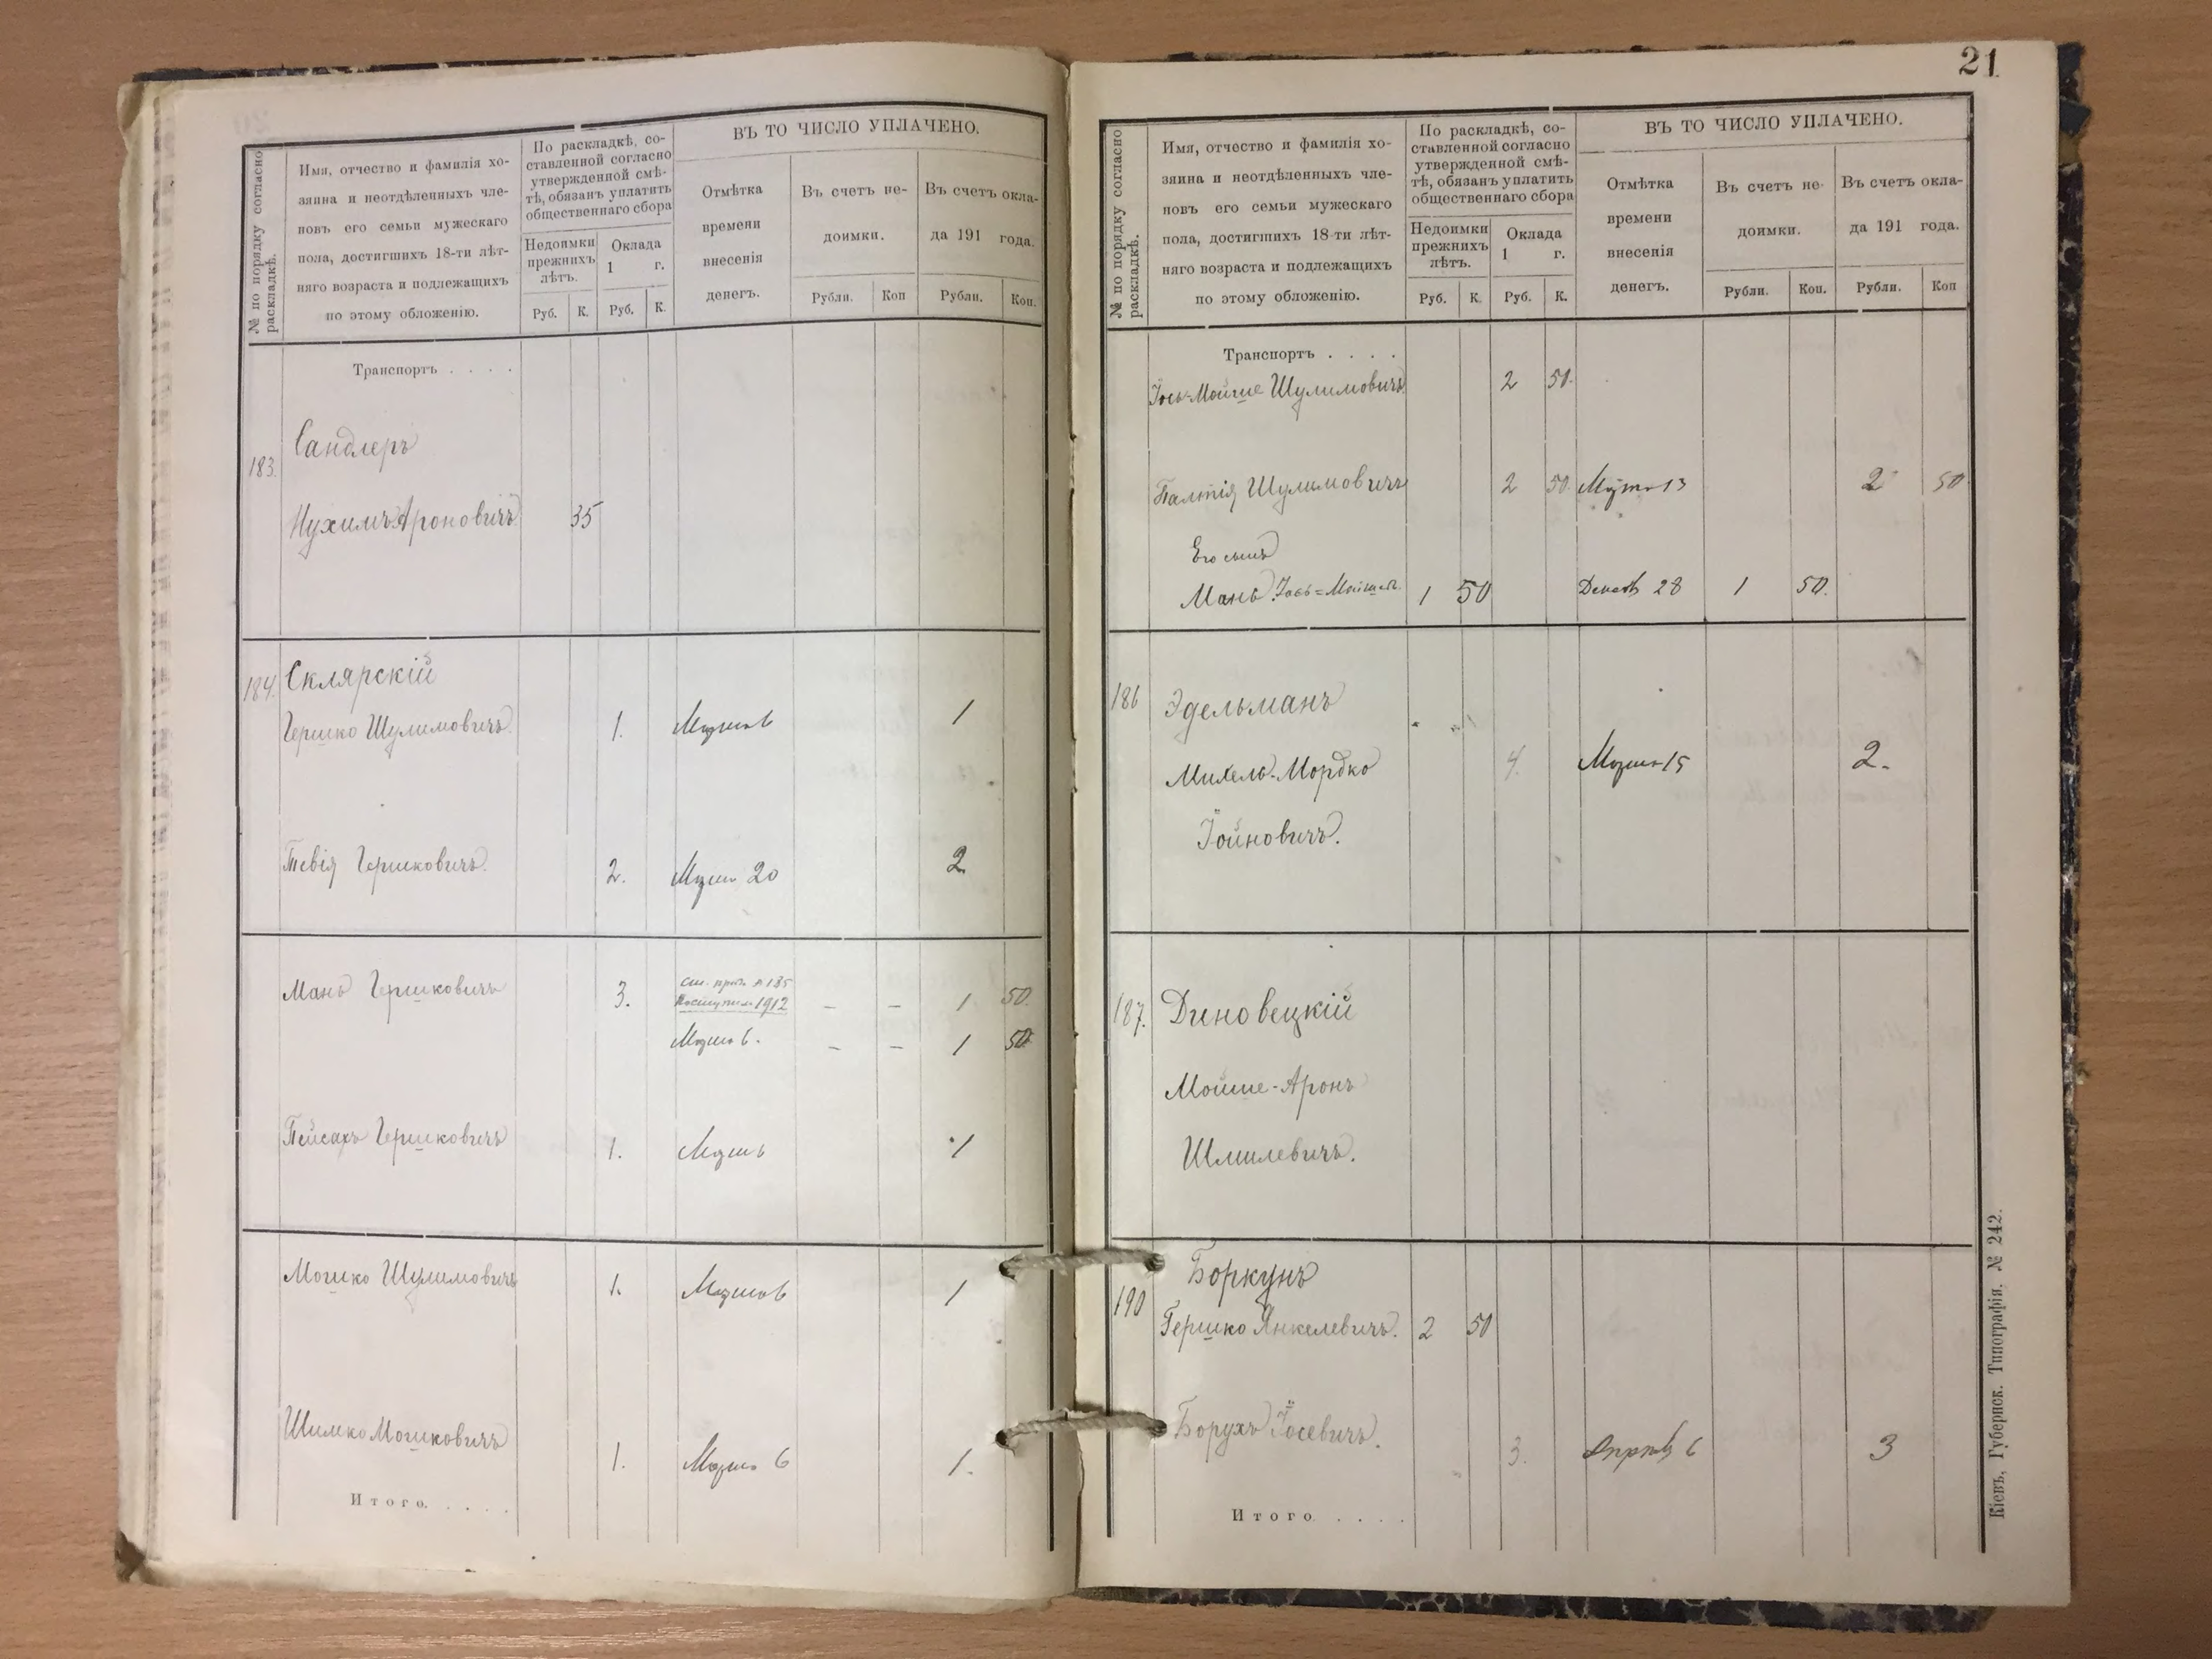 № по порядку согласно
раскладкѣ.
Имя, отчество и фамилія хо-
зяина и неотдѣленныхъ чле-
новъ его семьи мужескаго
пола, достигшихъ 18-ти лѣт-
няго возраста и подлежащихъ
по этому обложенію.
По раскладкѣ, со-
ставленной согласно
утвержденной смѣ-
тѣ, обязанъ уплатить
общественнаго сбора
Недоимки
прежнихъ
лѣтъ.
Оклада
1 г.
Руб. К. Руб. К.
ВЪ ТО ЧИСЛО УПЛАЧЕНО.
Отмѣтка
времени
внесенія
денегъ.
Въ счетъ не-
доимки.
Въ счетъ окла-
да 191 года.
Рубли. Коп Рубли. Коп.
Транспортъ . . . .
183. Сандлеръ
Нухимъ Ароновичъ 35
184. Склярскій
Гершко Шулимовичъ. 1. 1
Тевія Гершковичъ. 2. 20 2
Манъ Гершковичъ 3. 1912 – – 1 50
6. – – 1 50
Пейсахъ Гершковичъ 1. 1
Мошко Шулимовичъ 1. 1
Шимко Мошковичъ 1. 6 1.
Итого. . . . .
21
№ по порядку согласно
раскладкѣ.
Имя, отчество и фамилія хо-
зяина и неотдѣленныхъ чле-
новъ его семьи мужескаго
пола, достигшихъ 18-ти лѣт-
няго возраста и подлежащихъ
по этому обложенію.
По раскладкѣ, со-
ставленной согласно
утвержденной смѣ-
тѣ, обязанъ уплатить
общественнаго сбора
Недоимки
прежнихъ
лѣтъ.
Оклада
1 г.
Руб. К. Руб. К.
ВЪ ТО ЧИСЛО УПЛАЧЕНО.
Отмѣтка
времени
внесенія
денегъ.
Въ счетъ не-
доимки.
Въ счетъ окла-
да 191 года.
Рубли. Коп. Рубли. Коп
Транспортъ . . . .
Іось-Мойше Шулимовичъ 2 50.
Палтія Шулимовичъ 2 50. 13 2 50
Его сынъ
Манъ Іось=Мойшев. 1 50 28 1 50.
186 Эдельманъ
Михель-Мордко 4. 15 2.
Іойновичъ.
187. Диновецкій
Мойше-Аронъ
Шмилевичъ.
190 Боркунъ
Гершко Янкелевичъ. 2 50
Борухъ Іосевичъ. 3. 6 3
Итого . . . .
Кіевъ, Губернск. Типографія. № 242.